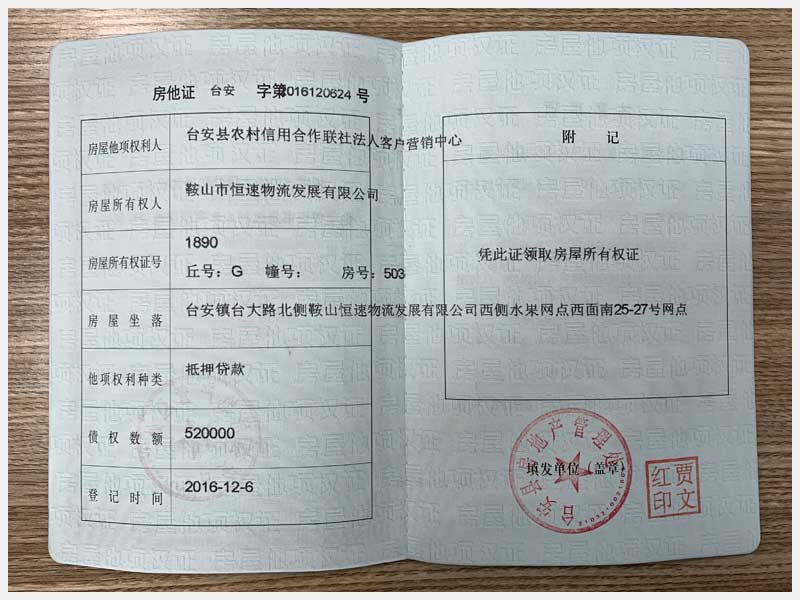 房他证 台安 字第2016120624 号
房屋他项权利人 台安县农村信用合作联社法人客户营销中心
房屋所有权人 鞍山市恒速物流发展有限公司
房屋所有权证号 1890
丘号：G 幢号： 房号：503
房屋坐落 台安镇台大路北侧鞍山恒速物流发展有限公司西侧水果网点西面南25-27号网点
他项权利种类 抵押贷款
债权数额 520000
登记时间 2016-12-6
附 记
凭此证领取房屋所有权证
台安县房地产管理处
填发单位（盖章）
贾文红印